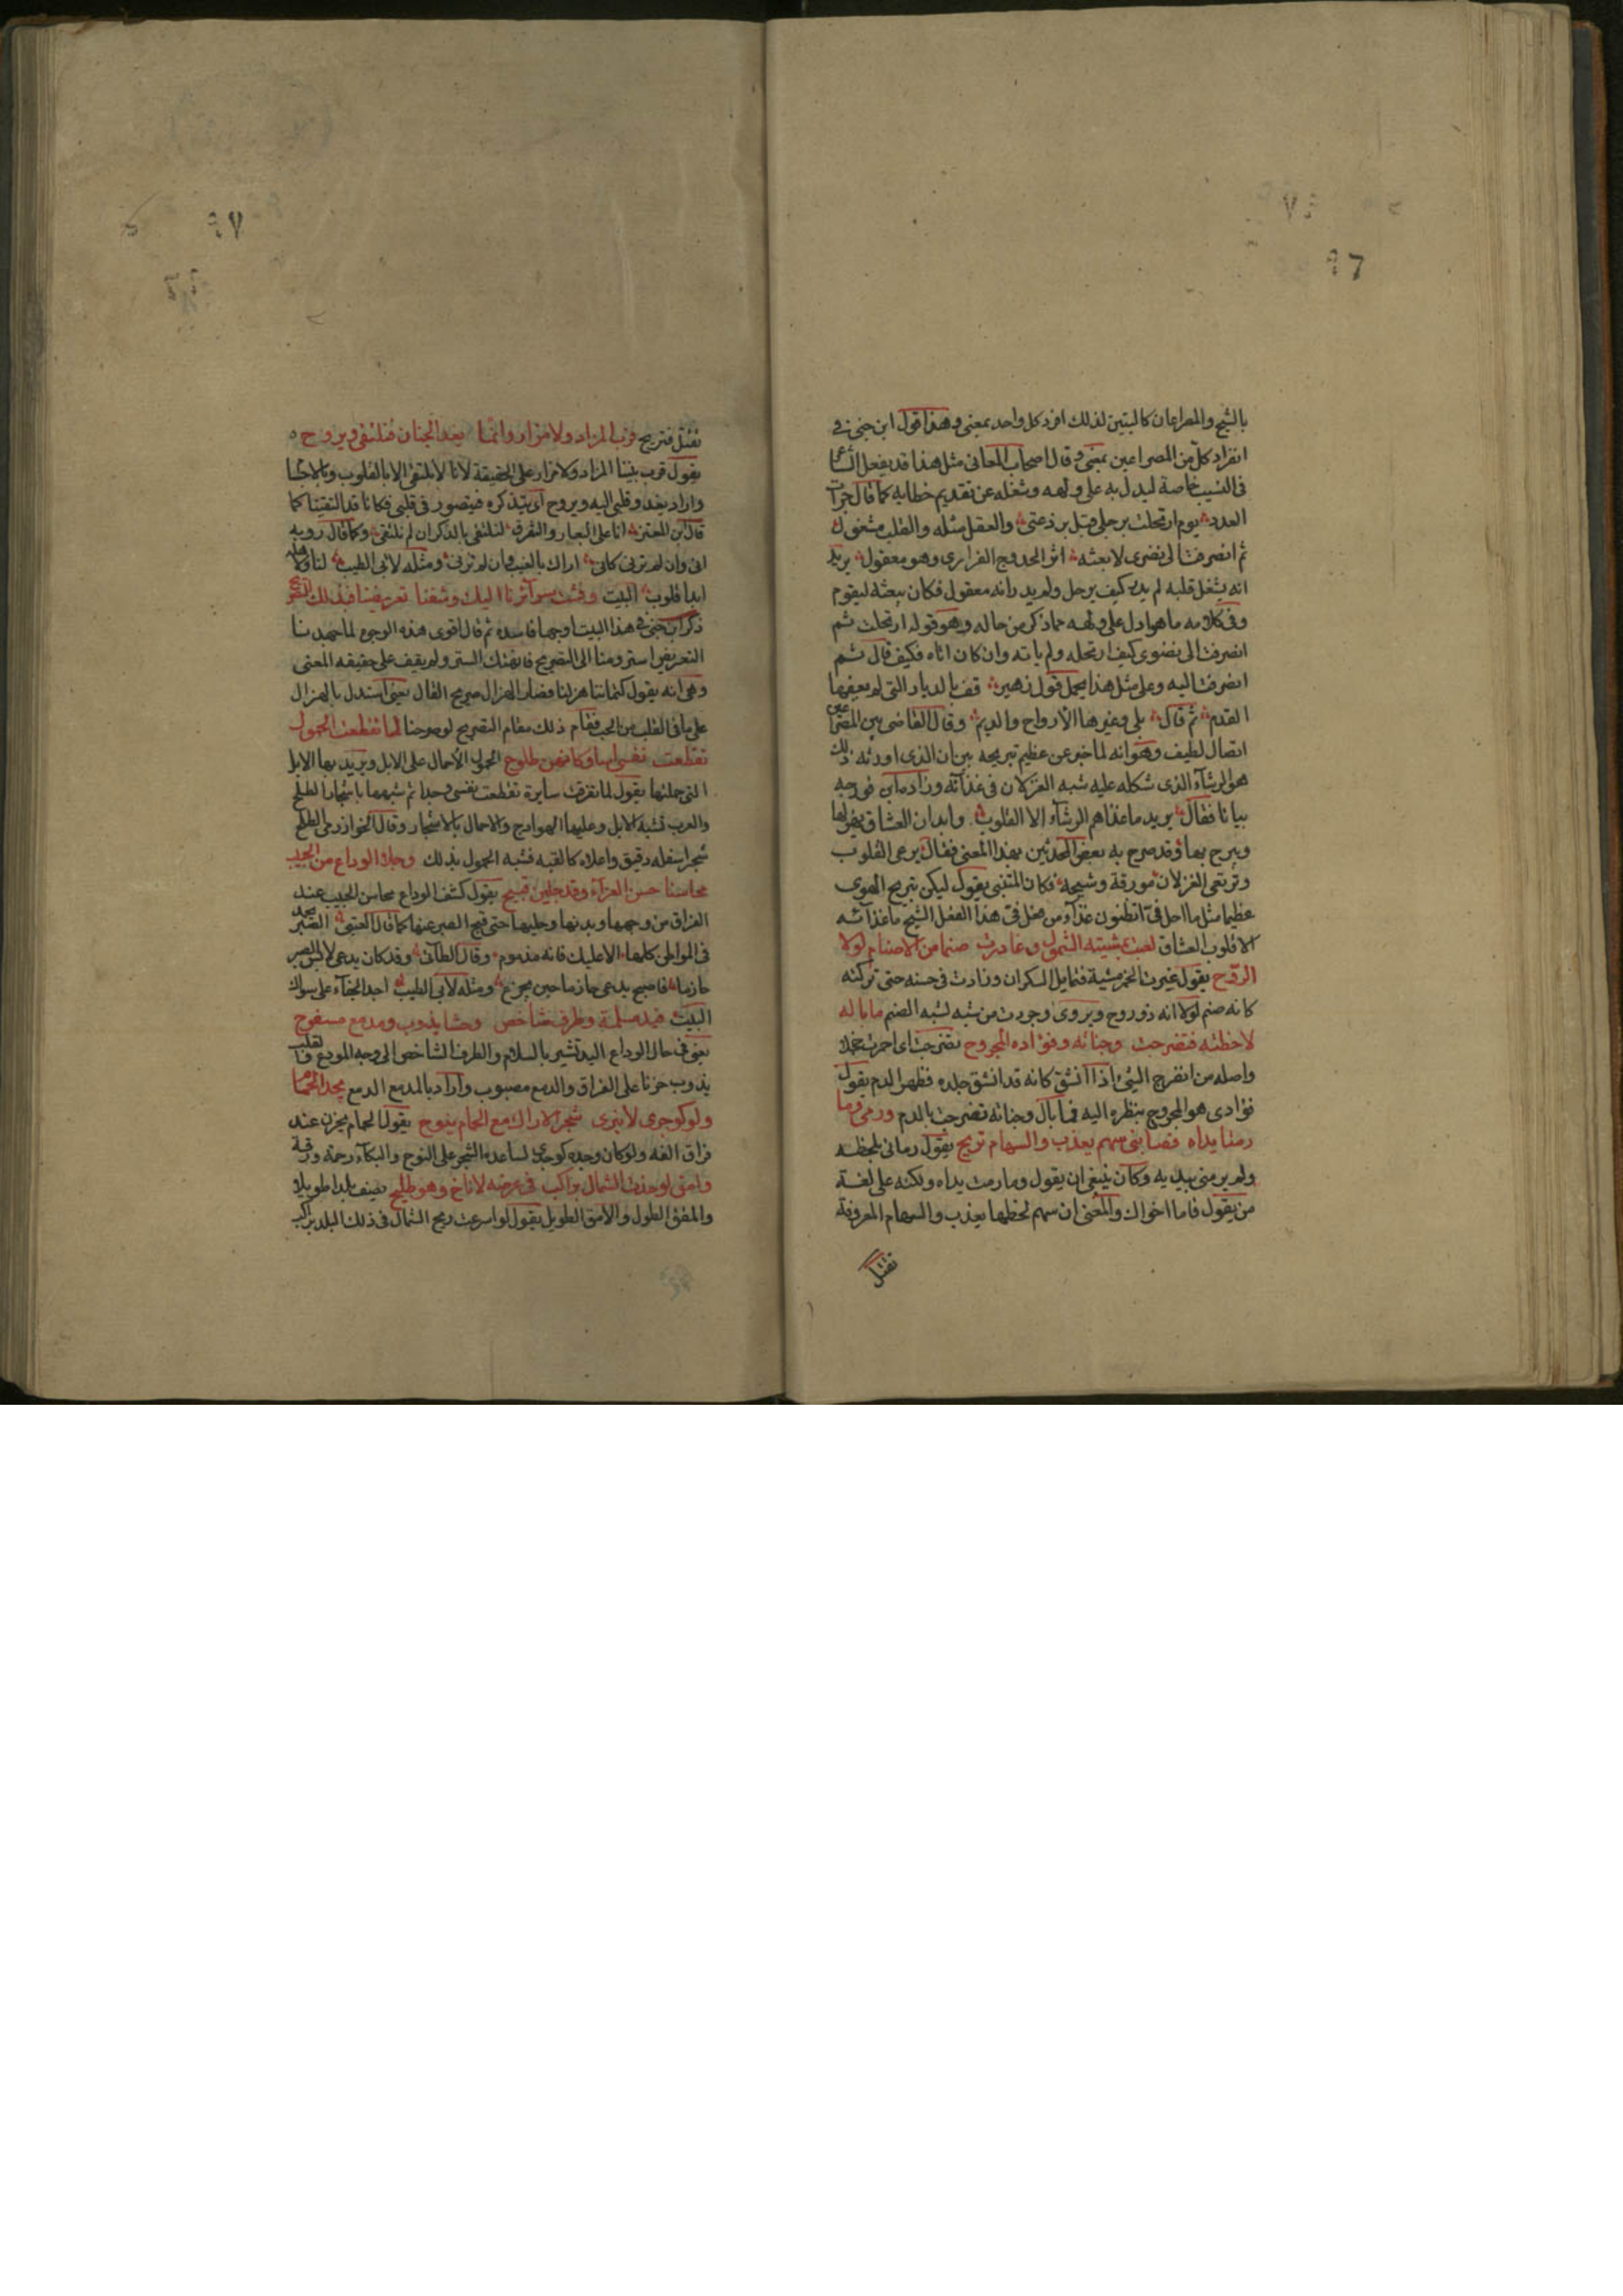 ٩٦
بالشيح والمصراعان كالبيتين لذلك افرد كل واحد بمعنى وهذا قول ابن جنى فى
انفراد كل من المصراعين بمعنى وقال اصحاب المعانى مثل هذا قد يفعل الشاعر
فى النسيب خاصة ليدل به على ولهه وشغله عن تقديم خطابه كما قال جران
العود يوم ارتحلت برحلى قبل برذعتى والعقل مثله والقلب مشغول
ثم انصرفت الى نضوى لابعثه اثر الحدوج الغوادى وهو معقول يريد
انه لشغل قلبه لم يدر كيف يرحل ولم يدر انه معقول فكان يبعثه ليقوم
وفى كلامه ما هو ادل على ولهه مما ذكر من حاله وهو قوله ارتحلت ثم
انصرفت الى نضوى كيف ارتحله ولم ياته وان كان اتاه فكيف قال ثم
انصرفت اليه وعلى مثل هذا يحمل قول زهير قف بالديار التى لم يعفها
القدم ثم قال بلى وغيرها الارواح والديم وقال القاضى بين المصراعين
اتصال لطيف وهو انه لما خبر عن عظيم تبريحه بين ان الذى اورثه ذلك
هو الرشأ الذى شكله عليه شبه الغزلان فى غذائه وزاد
بيانا فقال يريد ما غذاهم الرشآء الا القلوب وابدان العشاق
ويبرح بها وقد صرح به بعض المحدثين بهذا المعنى فقال يرعى القلوب
وترتعى الغزلان مورقة وشيحه فكان المتنبى يقول ليكن تبريح الهوى
عظيما مثل ما احل فى اتظنون غذاء من فعل فى هذا الفعل الشيح ما غذآئه
الا قلوب العشاق لعبت بمشيته الشمول وغادرت صنما من الاصنام لولا
الروح يقول غيرت الخمر مشية فتمايل السكران وزادت فى حسنه حتى تركته
كانه صنم لولا انه ذو روح ويروى وجردت من شبه لشبه الصنم ما باله
لاحظته فتضرجت وجناته وفؤاده المجروح تضرجت اى احمرت خجلا
واصله من انضرج الشئ اذا انشق كانه قد انشق جلده فظهر الدم يقول
فؤادى هو المجروح بنظره اليه فما بال وجناته تضرجت بالدم ورمى وما
رمتا يداه فصابنى سهم يعذب والسهام تريح يقول رمانى بلحظه
ولم يرمنى بيديه وكان ينبغى ان يقول وما رمت يداه ولكنه على لغة
من يقول قاما اخواك والمعنى ان سهم لحظها يعذب والسهام المعروفة
تقتل
٩٧
تقتل فتريح قرب المزار ولا مزار وانما يغدو الجنان فنلتقى ويروح
يقول قرب بيننا المزار ولا مزار على الحقيقة لانا لا نلتقى الا بالقلوب
واراد يغدو قلبى اليه ويروح اى يتذكره فيتصور فى قلبى فكانا قد التقينا كما
قال بن المعتز انا على البعاد والتفرق لنلتقى بالذكر ان لم نلتقى وكما قال روبه
انى وان لم ترنى كاننى اراك بالغيب وان لم ترنى ومثله لابى الطيب لنا ولاهله
ابدا قلوب البيت وفشت سرآئرنا اليك وشفنا تعريضنا فبدا لك التصريح
ذكر ابن جنى فى هذا البيت اوجها فاسده ثم قال اقوى هذه الوجوه لما جهدنا
التعريض استروحنا الى التصريح فانهتك الستر ولم يقف على حقيقه المعنى
وهى انه يقول كتماننا هزلنا فصار الهزال صريح المقال يعنى استدل بالهزال
على ما فى القلب من الحب فقام ذلك مقام التصريح لو صرحنا لما تقطعت الحمول
تقطعت نفسى اسا وكانهن طلوح الحمول الاحمال على الابل ويريد بها الابل
التى حملتها يقول لما تفرقت سايرة تقطعت نفسى وجدا ثم شبهها باشجار الطلح
والعرب تشبه الابل وعليها الهوادج والاحمال بالاشجار وقال الخوارزمى الطلح
شجر اسفله دقيق واعلاه كالقبه فشبه الحمول بذلك وجلا الوداع من الحبيب
محاسنا حسن العزآء وقد جلين قبيح يقول كشف الوداع محاسن الحبيب عند
الفراق من وجهها ويدنها وحليها حتى قبح الصبر عنها كما قال العتبى الصبر يحمد
فى المواطن كلها الا عليك فانه مذموم وقال الطآئى وقد كان يدعى لابس الصبر
حازما فاصبح يدعى حازما حين يجزع ومثله لابى الطيب اجد الجفآء على سواك
البيت فيد مسلمة وطرف شاخص وحشا يذوب ومدمع مسفوح
يعنى فى حال الوداع اليد تشير بالسلام والطرف الشاخص الى وجه المودع والقلب
يذوب حزنا على الفراق والدمع مصبوب واراد بالمدمع الدمع يجد الحمام
ولو كوجدى لانبرى شجر الاراك مع الحمام ينوح يقول الحمام يحزن عند
فراق الفه ولو كان وجده كوجدى لساعده الشجر على النوح والبكآء رحمة ورقة
وامق لو خدت الشمال براكب فى عرضه لاناخ وهو طليح يصف بلدا طويلا
والمقق الطول والامق الطويل يقول لو اسرعت ريح الشمال فى ذلك البلد براكب